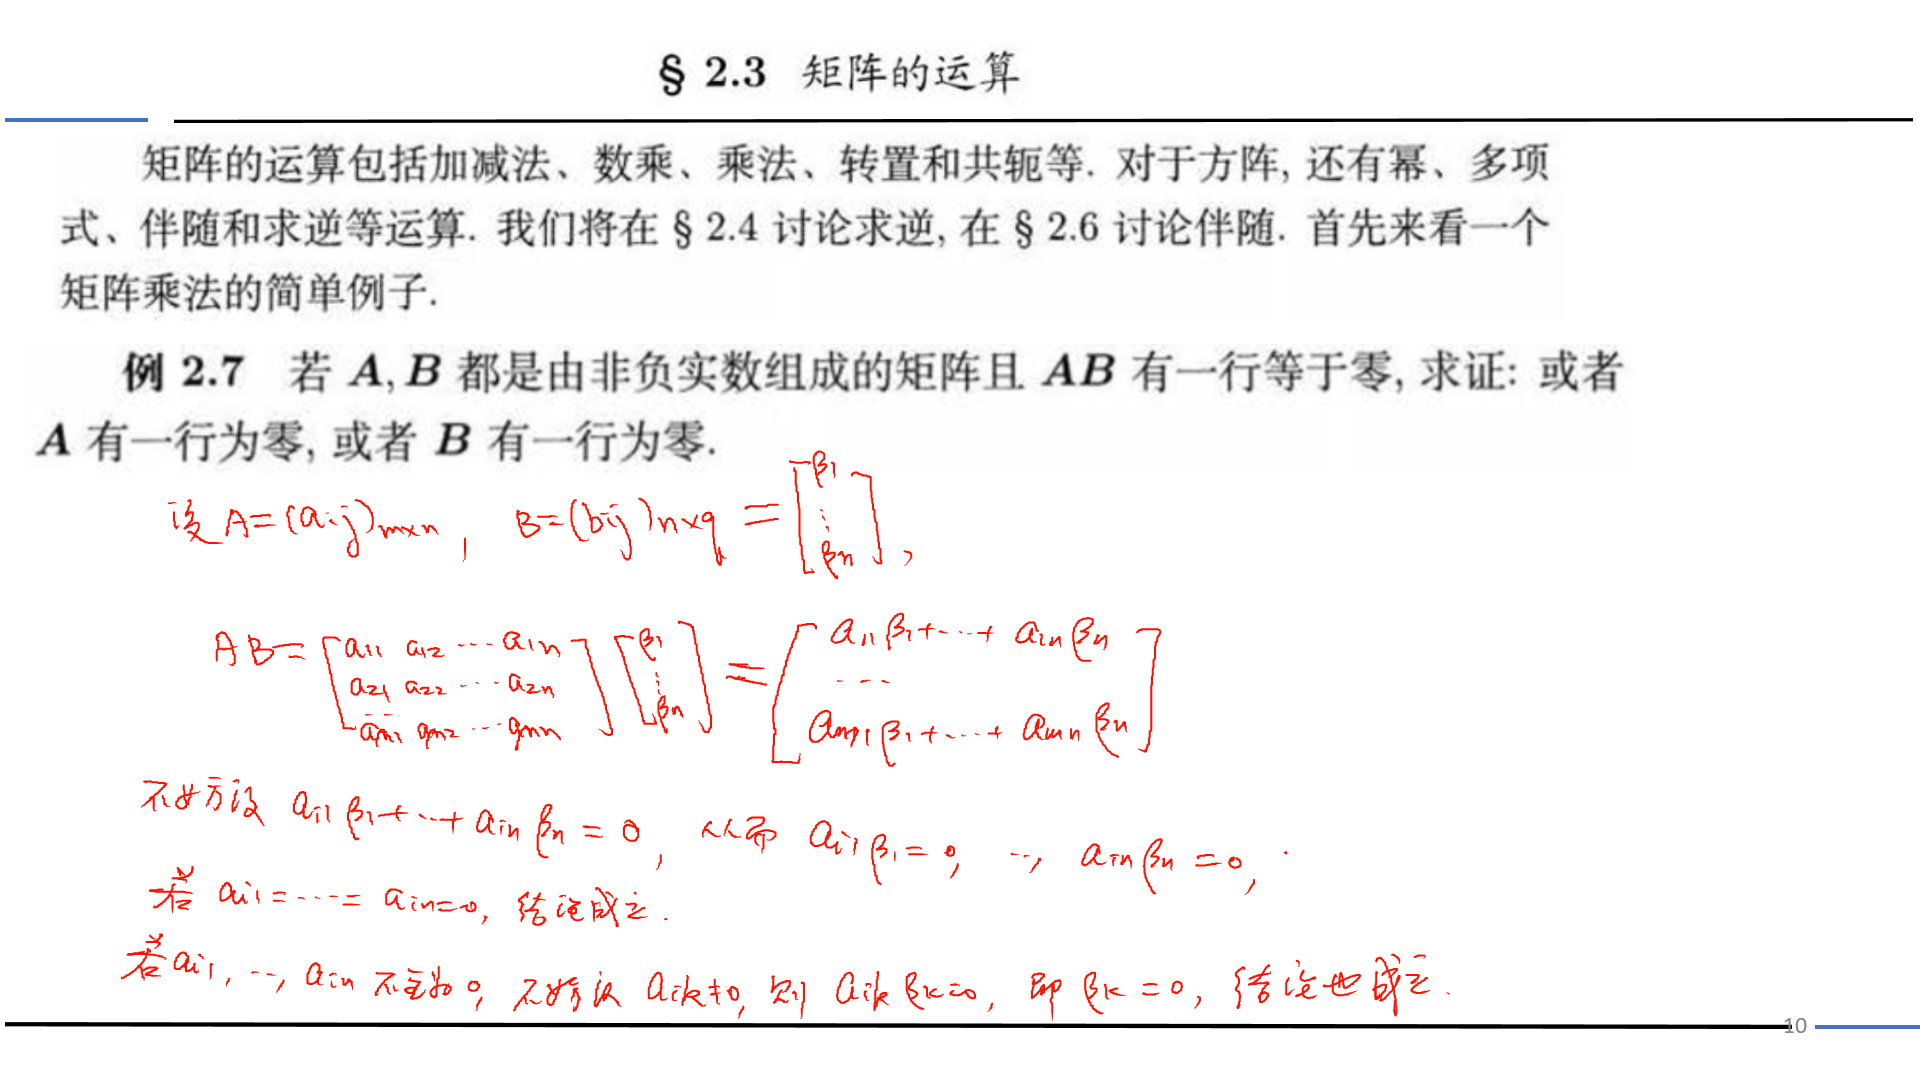 § 2.3 矩阵的运算
矩阵的运算包括加减法、数乘、乘法、转置和共轭等. 对于方阵, 还有幂、多项
式、伴随和求逆等运算. 我们将在 § 2.4 讨论求逆, 在 § 2.6 讨论伴随. 首先来看一个
矩阵乘法的简单例子.
例 2.7 若 A, B 都是由非负实数组成的矩阵且 AB 有一行等于零, 求证: 或者
A 有一行为零, 或者 B 有一行为零.
设 A=(aij)m×n, B=(bij)n×q = [β1 ⋮ βn],
AB = [a11 a12 ⋯ a1n
a21 a22 ⋯ a2n
am1 am2 ⋯ amn] [β1 ⋮ βn] = [a11β1+⋯+a1nβn
⋯
am1β1+⋯+amnβn]
不妨设 ai1β1+⋯+ainβn=0, 从而 ai1β1=0, ⋯, ainβn=0,
若 ai1=⋯=ain=0, 结论成立.
若 ai1, ⋯, ain 不全为0, 不妨设 aik≠0, 则 aikβk=0, 即 βk=0, 结论也成立.
10